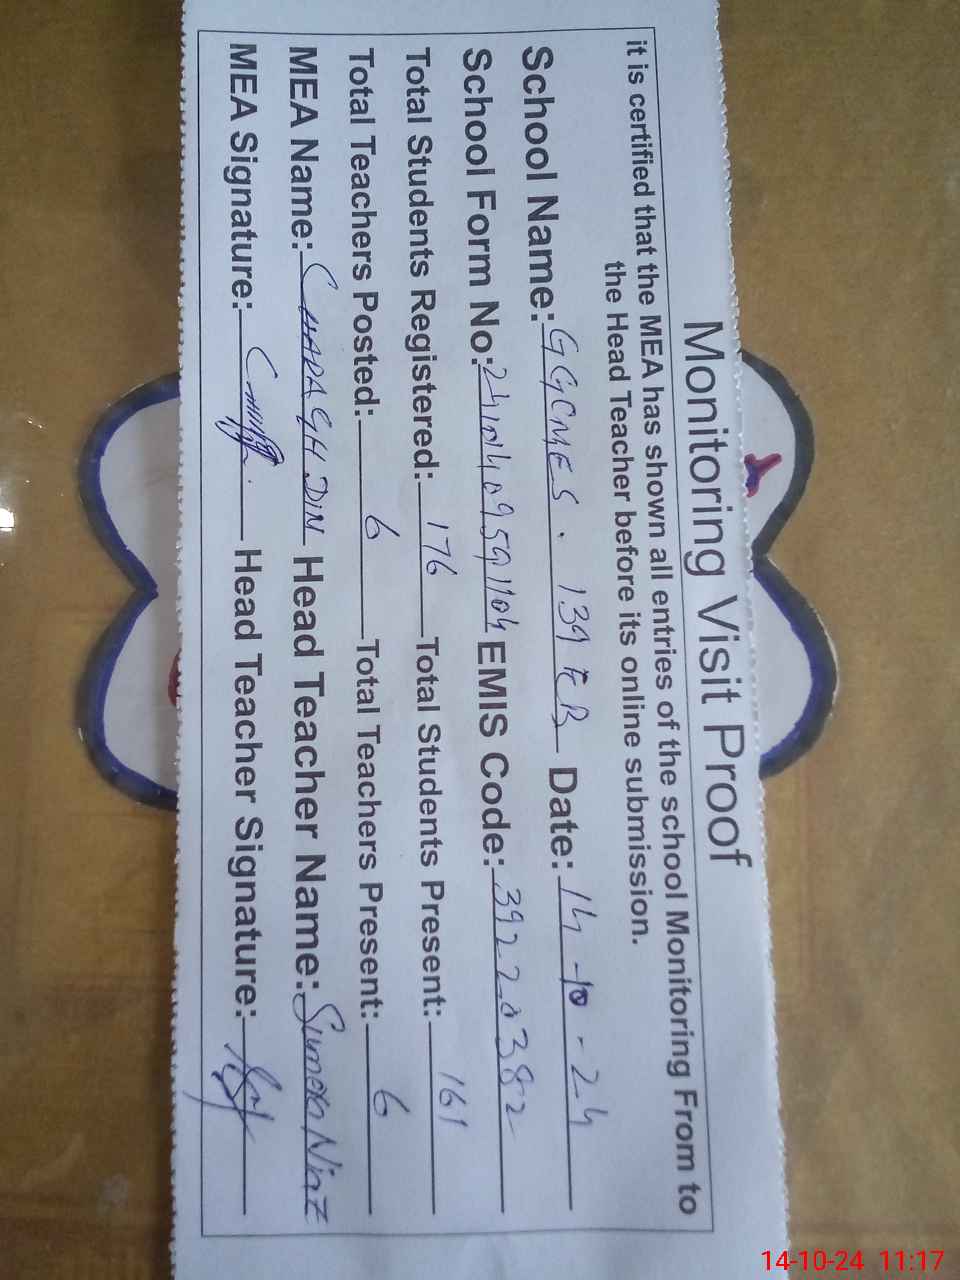 Monitoring Visit Proof
it is certified that the MEA has shown all entries of the school Monitoring From to
the Head Teacher before its online submission.
School Name: GGCMES. 139 EB Date: 14-10-24
School Form No: EMIS Code: 39220382
Total Students Registered: 176 Total Students Present: 161
Total Teachers Posted: 6 Total Teachers Present: 6
MEA Name: CHARAGH DIN Head Teacher Name: Sumera Niaz
MEA Signature: Head Teacher Signature:
14-10-24 11:17